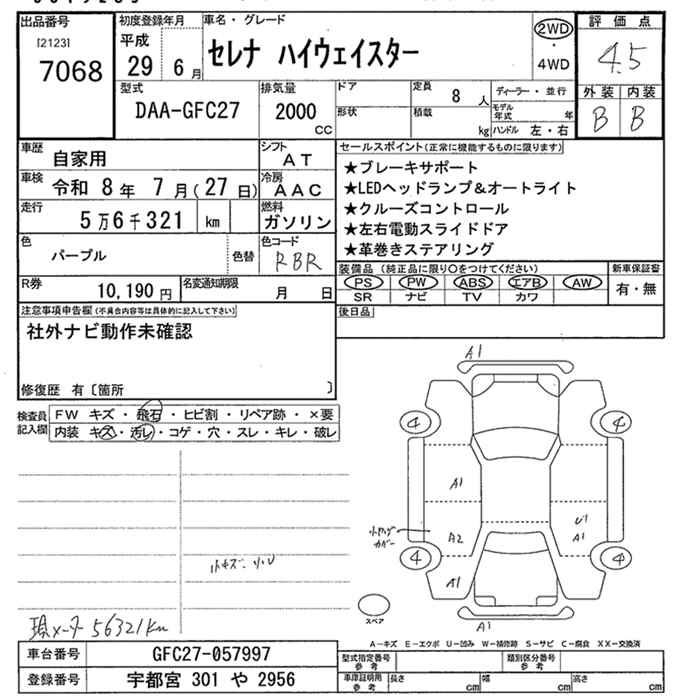 出品番号
[2123]
7068
初度登録年月
平成
29 6月
車名・グレード
セレナ ハイウェイスター
2WD
・
4WD
評価点
4.5
外装 内装
B B
型式
DAA-GFC27
排気量
2000
CC
ドア
形状
定員
8 人
積載
kg
ディーラー・並行
モデル年式 年
ハンドル 左・右
車歴
自家用
シフト
AT
車検
令和 8年 7月(27日)
冷房
AAC
走行
5万6千321 km
燃料
ガソリン
色
パープル
色替
色コード
RBR
R券
10,190円
名変通知期限
月 日
セールスポイント(正常に機能するものに限ります)
★ブレーキサポート
★LEDヘッドランプ&オートライト
★クルーズコントロール
★左右電動スライドドア
★革巻きステアリング
装備品(純正品に限り〇をつけてください)
PS PW ABS エアB AW
SR ナビ TV カワ
新車保証書
有・無
後日品
注意事項申告欄(不具合内容等は具体的に記入して下さい)
社外ナビ動作未確認
修復歴 有〔箇所 〕
検査員
記入欄
FW キズ・飛石・ヒビ割・リペア跡・×要
内装 キズ・汚レ・コゲ・穴・スレ・キレ・破レ
小キズ・小U
現メーター 56321km
A1
4 4
A1
U1
A1
A2
4 4
A1
A1
スペア
A-キズ E-エクボ U-凹み W-補修跡 S-サビ C-腐食 XX-交換済
車台番号
GFC27-057997
登録番号
宇都宮 301 や 2956
型式指定番号
参考
類別区分番号
参考
車庫証明用
参考
長さ cm
幅 cm
高さ cm